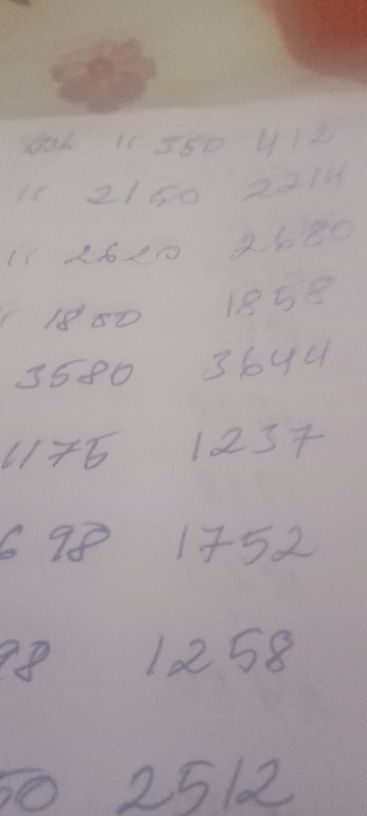 " 350 412
" 2150 2214
" 2620 2680
" 1800 1858
3580 3644
1175 1237
698 1752
98 1258
50 2512